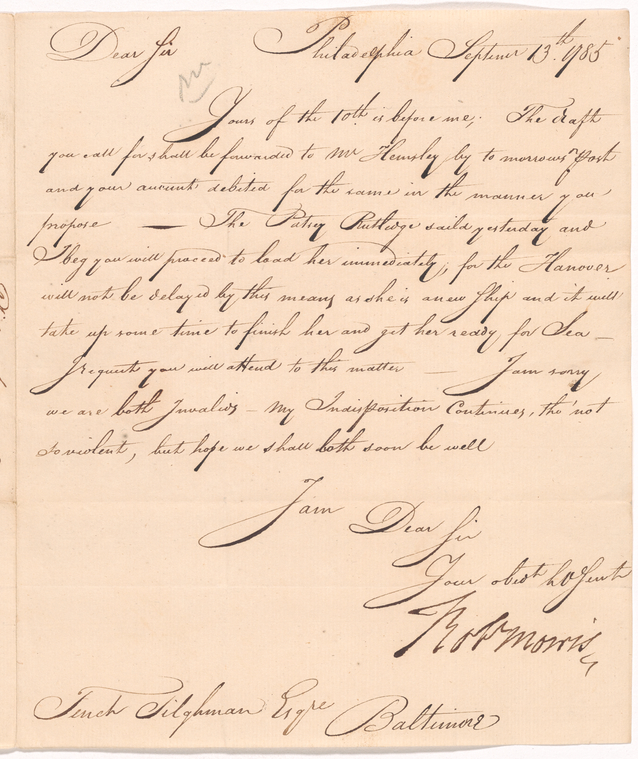 Dear Sir Philadelphia Septemr 13th. 1785
Yours of the 10th is before me; The drafts
you call for shall be forwarded to Mr Hemsley by to morrows Post
and your account debited for the same in the manner you
propose — The Patsey Rutledge saild yesterday and
I beg you will proceed to load her immediately, for the Hanover
will not be delayed by this means as she is a new Ship and it will
take up some time to finish her and get her ready for Sea —
I request you will attend to this matter — I am sorry
we are both Invalids — My Indisposition Continues, tho' not
so violent, but hope we shall both soon be well
I am
Dear Sir
Your obedt hble Servt
Robt Morris
Tench Tilghman Esqre Baltimore